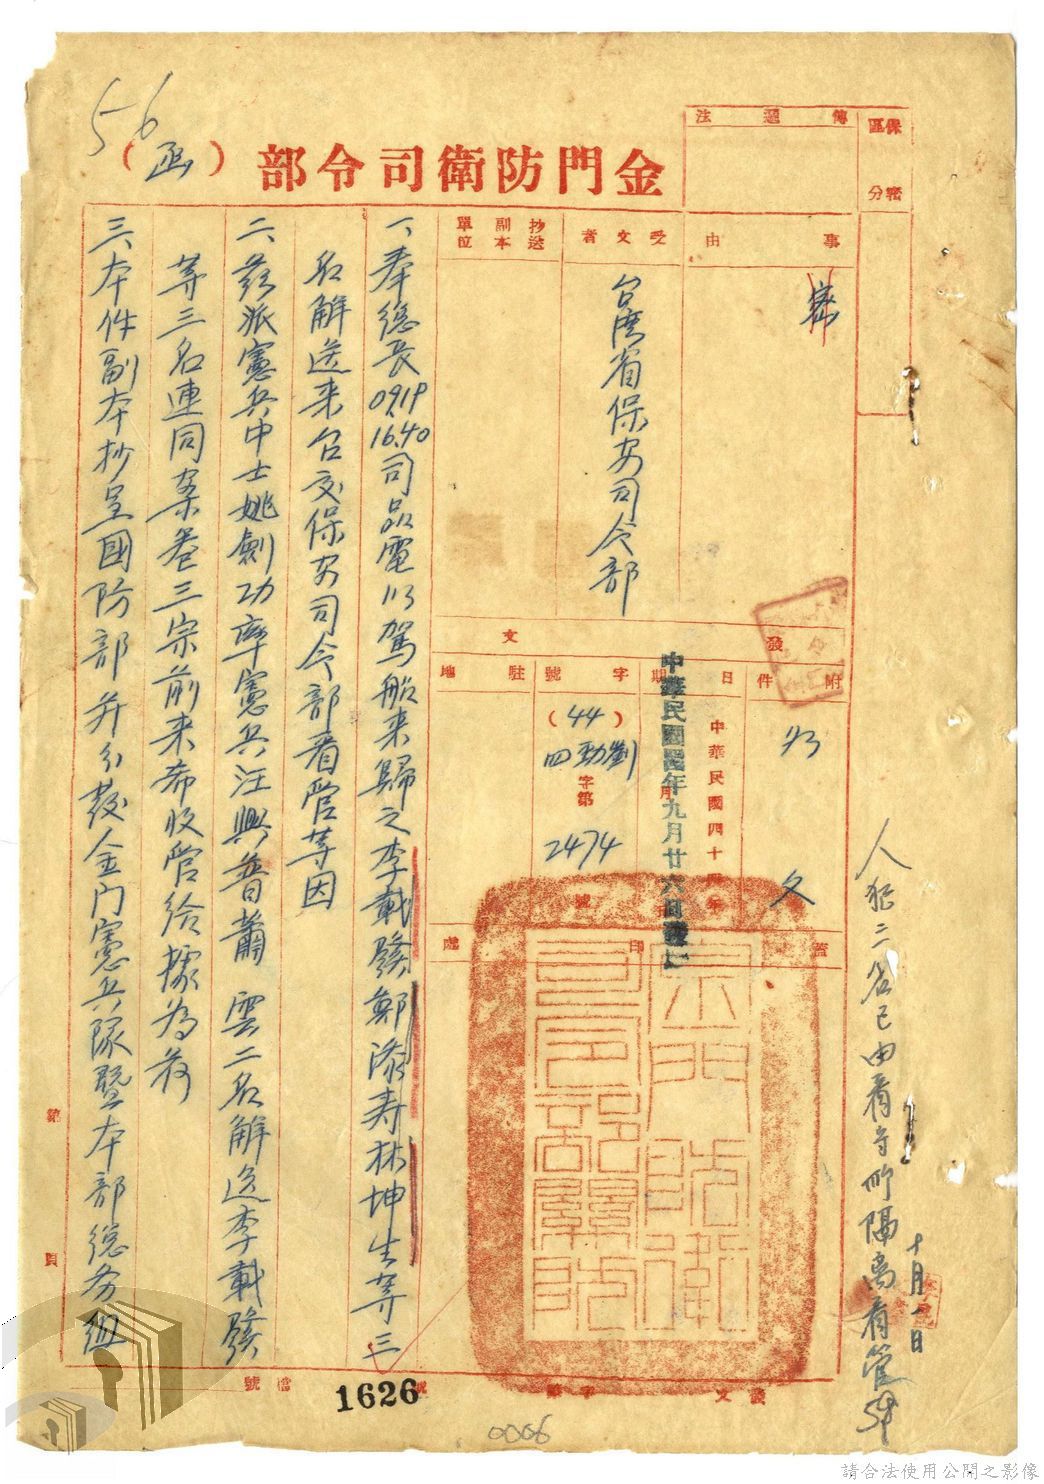 56
金門防衛司令部
（函）
保密
區分
傳遞法
事由
受文者
抄送副本單位
台灣省保安司令部
發文
附件
日期
字號
駐地
如文
中華民國四十四年
月
中華民國四四年九月廿六日發
（44）
四勁劉
字第
2474
號
蓋印處
金門防衛司令部關防
一、奉總長0919
16.40司品電以駕船來歸之李載發鄭添寿林坤生等三
名解送来台交保安司令部看管等因
二、茲派憲兵中士姚劍功率憲兵汪興普蕭雲二名解送李載發
等三名連同案卷三宗前来希收管給據為荷
三、本件副本抄呈國防部并分發金门憲兵隊暨本部總务組
人犯二名已由看守所隔离看管
十月一日
第
頁
檔號
1626
發文字第
號
0006
請合法使用公開之影像